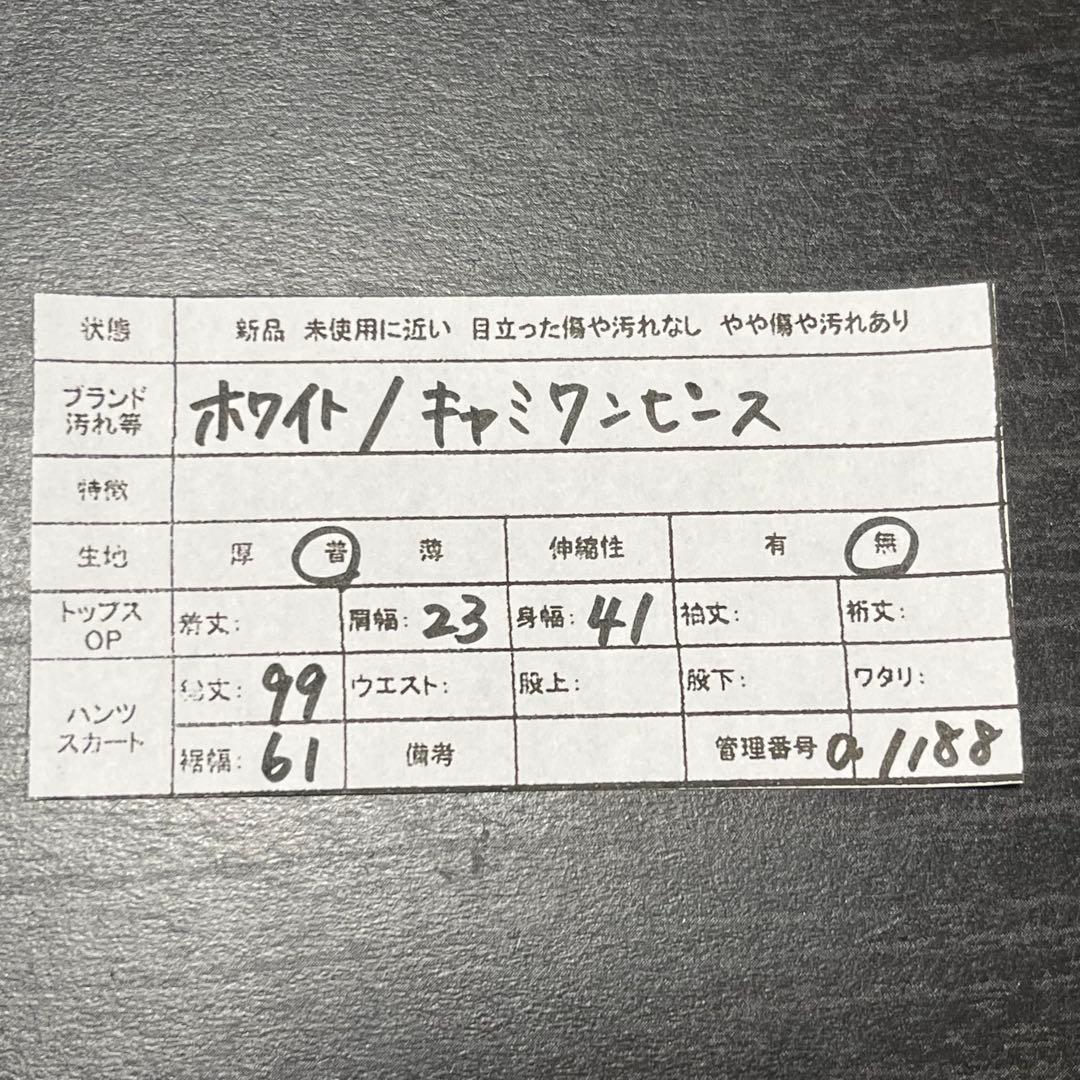 状態 新品 未使用に近い 目立った傷や汚れなし やや傷や汚れあり
ブランド
汚れ等
ホワイト/キャミワンピース
特徴
生地 厚 普 薄 伸縮性 有 無
トップス
OP
着丈: 肩幅: 23 身幅: 41 袖丈: 裄丈:
パンツ
スカート
総丈: 99 ウエスト: 股上: 股下: ワタリ:
裾幅: 61 備考 管理番号 a1188